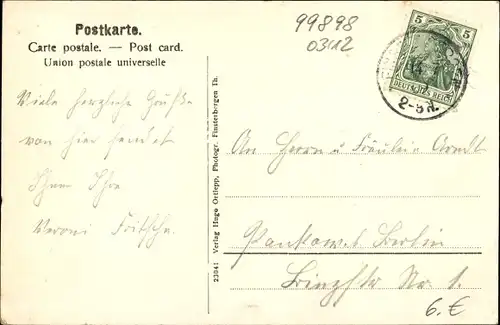 Postkarte.
Carte postale. — Post card.
Union postale universelle
99898
03112
5 5
DEUTSCHES REICH
2-3N.
Viele herzliche Grüße
von hier sendet
Ihnen Ihre
Fritsche.
23041 Verlag Hugo Ortlepp, Photogr. Finsterbergen Th.
An Herrn u Fräulein Arndt
Pankow b. Berlin
Binzstr Nr. 1.
6.€